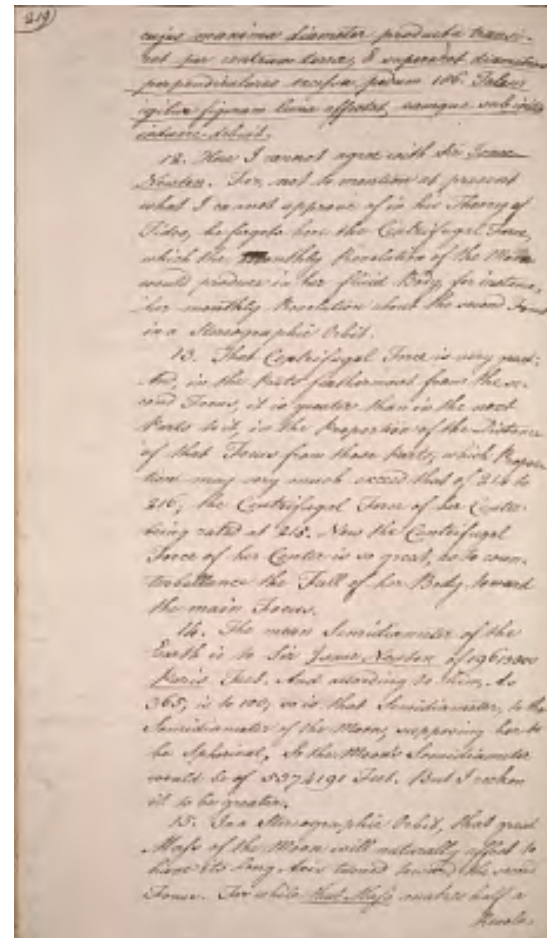 219)
cujus maxima diameter producta transi-
ret per centrum terræ, & superaret diametros
perpendiculares excessu pedum 186. Talem
igitur figuram luna affectat, eamque sub initio
induere debuit.
12. Here I cannot agree with Sir Isaac
Newton. For, not to mention at present
what I cannot approve of in his Theory of
Tides, he forgets here the Centrifugal Force,
which the Monthly Revolution of the Moon
would produce in her fluid Body, for instance,
her monthly Revolution about the second Focus
in a Stereographic Orbit.
13. That Centrifugal Force is very great:
And, in the Parts farthermost from the se-
cond Focus, it is greater than in the next
Parts to it, in the Proportion of the Distance
of that Focus from those Parts, which Propor-
tion may very much exceed that of 214 to
216; the Centrifugal Force of her Center
being rated at 215. Now the Centrifugal
Force of her Center is so great, as to coun-
terballance the Fall of her Body toward
the main Focus.
14. The mean Semidiameter of the
Earth is to Sir Isaac Newton of 19615800
Paris Feet. And according to him, As
365, is to 100, so is that Semidiameter, to the
Semidiameter of the Moon, supposing her to
be Spherical, So the Moon's Semidiameter
would be of 5374191 Feet. But I reckon
it to be greater.
15. In a Stereographic Orbit, that great
Mass of the Moon will naturally affect to
have its long Axis turned toward the second
Focus. For while that Mass makes half a
Revolu-